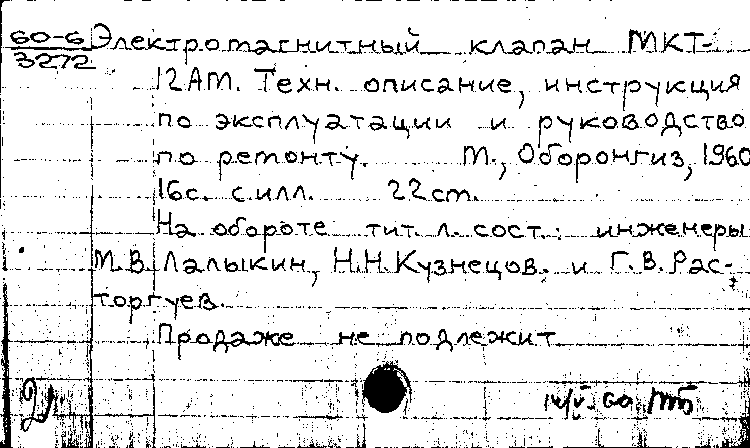 60-6 Электромагнитный клапан МКТ-
3272
12АМ. Техн. описание, инструкция
по эксплуатации и руководство
по ремонту. М., Оборонгиз, 1960
16с. с илл. 22см.
На обороте тит. л. сост.: инженеры
М.В. Лалыкин, Н.Н. Кузнецов. и Г.В. Рас-
торгуев.
Продаже не подлежит